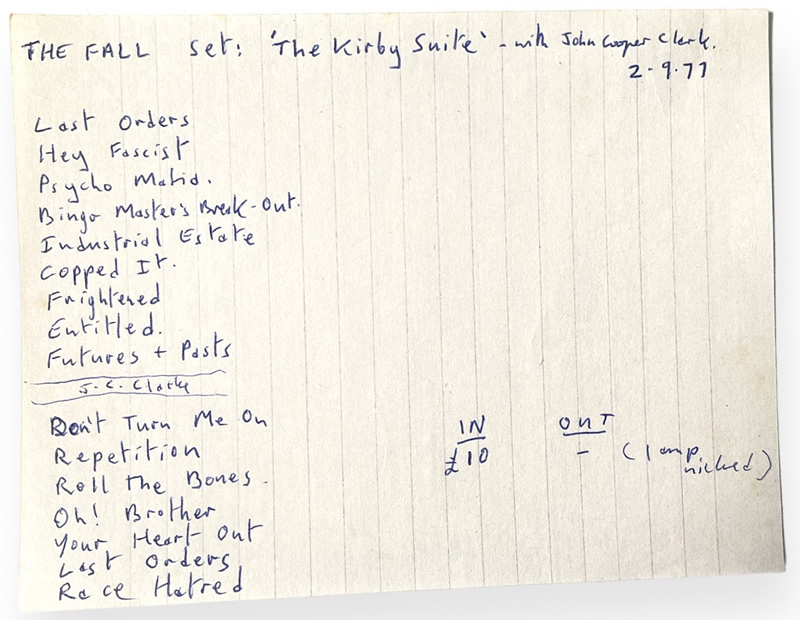 THE FALL set: 'The Kirby Suite' - with John Cooper Clerk.
2-9-77
Last Orders
Hey Fascist
Psycho Mafia.
Bingo Master's Break-Out.
Industrial Estate
Copped It.
Frightened
Entitled.
Futures + Pasts
J.C. Clarke
Don't Turn Me On
Repetition
Roll the Bones.
Oh! Brother
Your Heart Out
Last Orders
Race Hatred
IN OUT
£10 - (1 amp nicked)